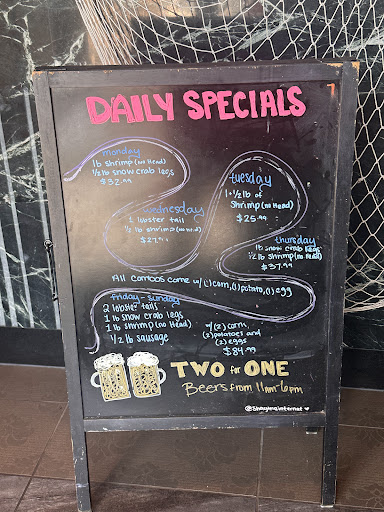 DAILY SPECIALS
monday
lb shrimp (no Head)
1/2 lb snow crab legs
$32.99
tuesday
1+1/2 lb of
Shrimp (no Head)
$25.99
wednesday
1 lobster tail
1/2 lb shrimp (no Head)
thursday
lb snow crab legs
1/2 lb shrimp (no Head)
$37.99
All combos come w/ (1) corn, (1) potato, (1) egg
Friday - Sunday
2 lobster tails
1 lb snow crab legs
1 lb shrimp (no Head)
1/2 lb sausage
w/ (2) corn,
(2) potatoes and
(2) eggs
$84.99
TWO for ONE
Beers from 11am-6pm